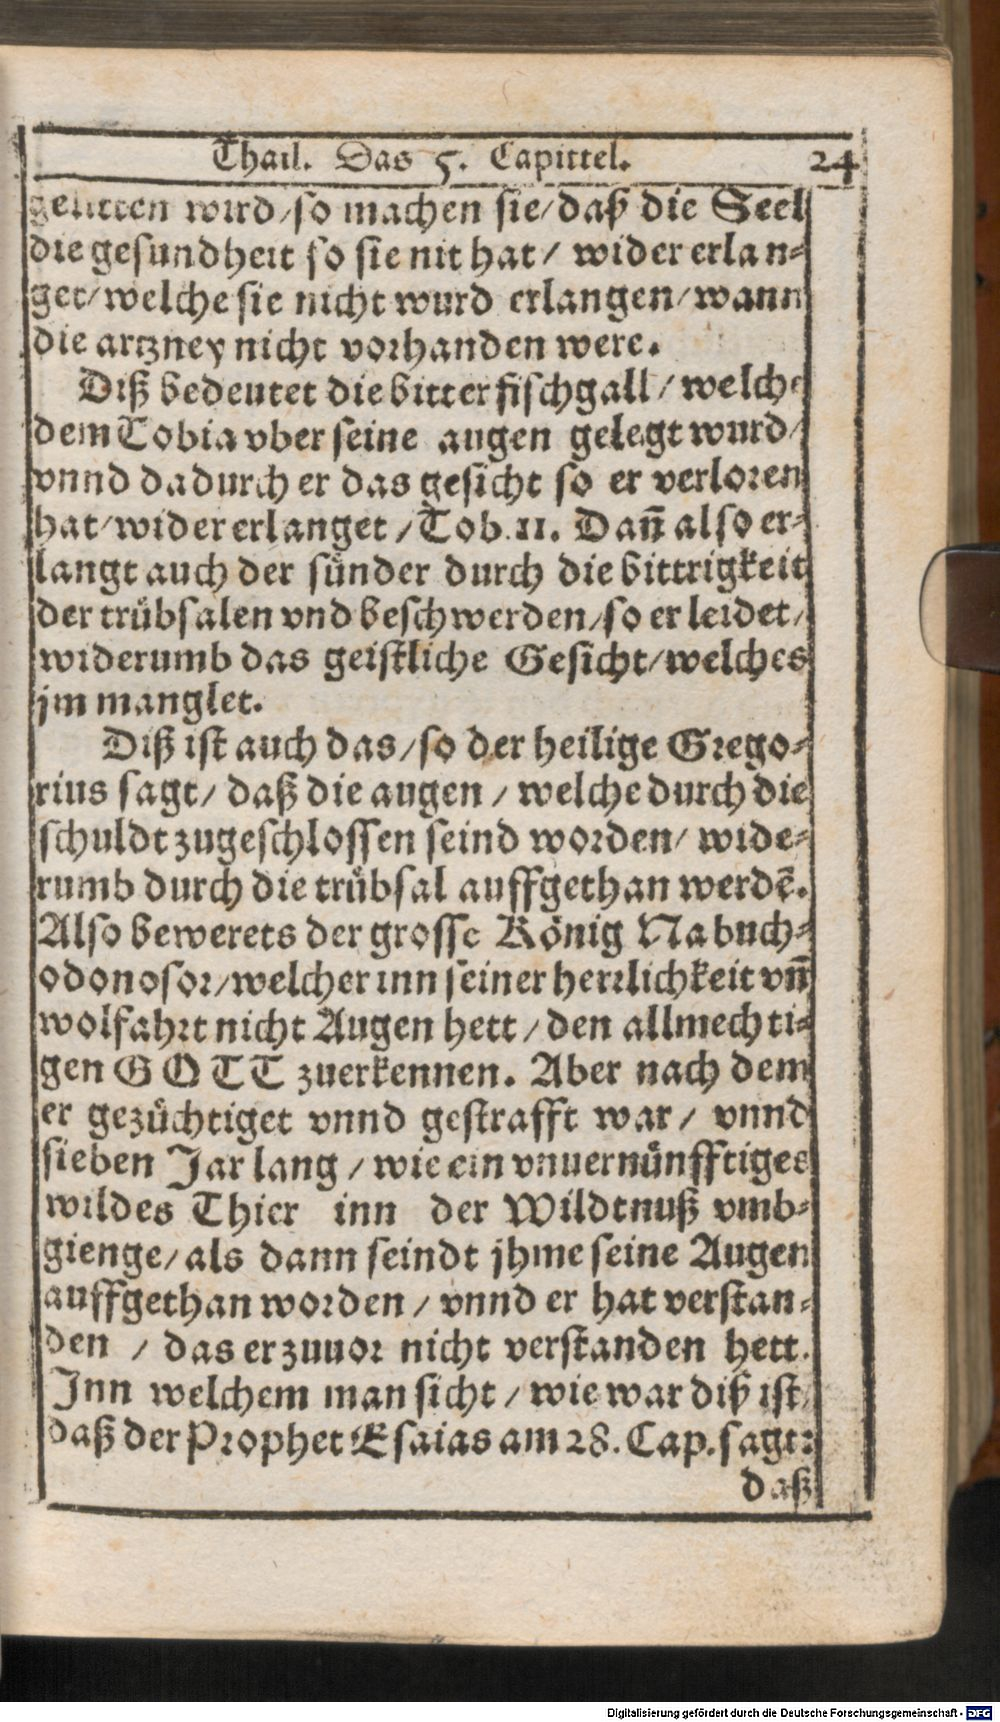 Thail. Das 5. Capittel. 24
gelitten wird/so machen sie/daß die Seel
die gesundheit so sie nit hat/ wider erlan-
get/welche sie nicht wurd erlangen/wann
die artzney nicht vorhanden were.
Diß bedeutet die bitter fischgall/welche
dem Tobia vber seine augen gelegt wurd/
vnnd dadurch er das gesicht so er verloren
hat/wider erlanget/Tob.11. Dañ also er-
langt auch der sünder durch die bittrigkeit
der trübsalen vnd beschwerden/so er leidet/
widerumb das geistliche Gesicht/welches
jm manglet.
Diß ist auch das/so der heilige Grego-
rius sagt/ daß die augen/welche durch die
schuldt zugeschlossen seind worden/ wide-
rumb durch die trübsal auffgethan werdē.
Also bewerets der grosse König Nabuch-
odonosor/welcher inn seiner herrlichkeit vñ
wolfahrt nicht Augen hett/den allmechti-
gen GOTT zuerkennen. Aber nach dem
er gezüchtiget vnnd gestrafft war/ vnnd
sieben Jar lang/wie ein vnuernünfftiges
wildes Thier inn der Wildtnuß vmb-
gienge/als dann seindt jhme seine Augen
auffgethan worden/vnnd er hat verstan-
den/das er zuuor nicht verstanden hett.
Inn welchem man sicht/wie war diß ist/
daß der Prophet Esaias am 28. Cap. sagt:
daß
Digitalisierung gefördert durch die Deutsche Forschungsgemeinschaft - DFG